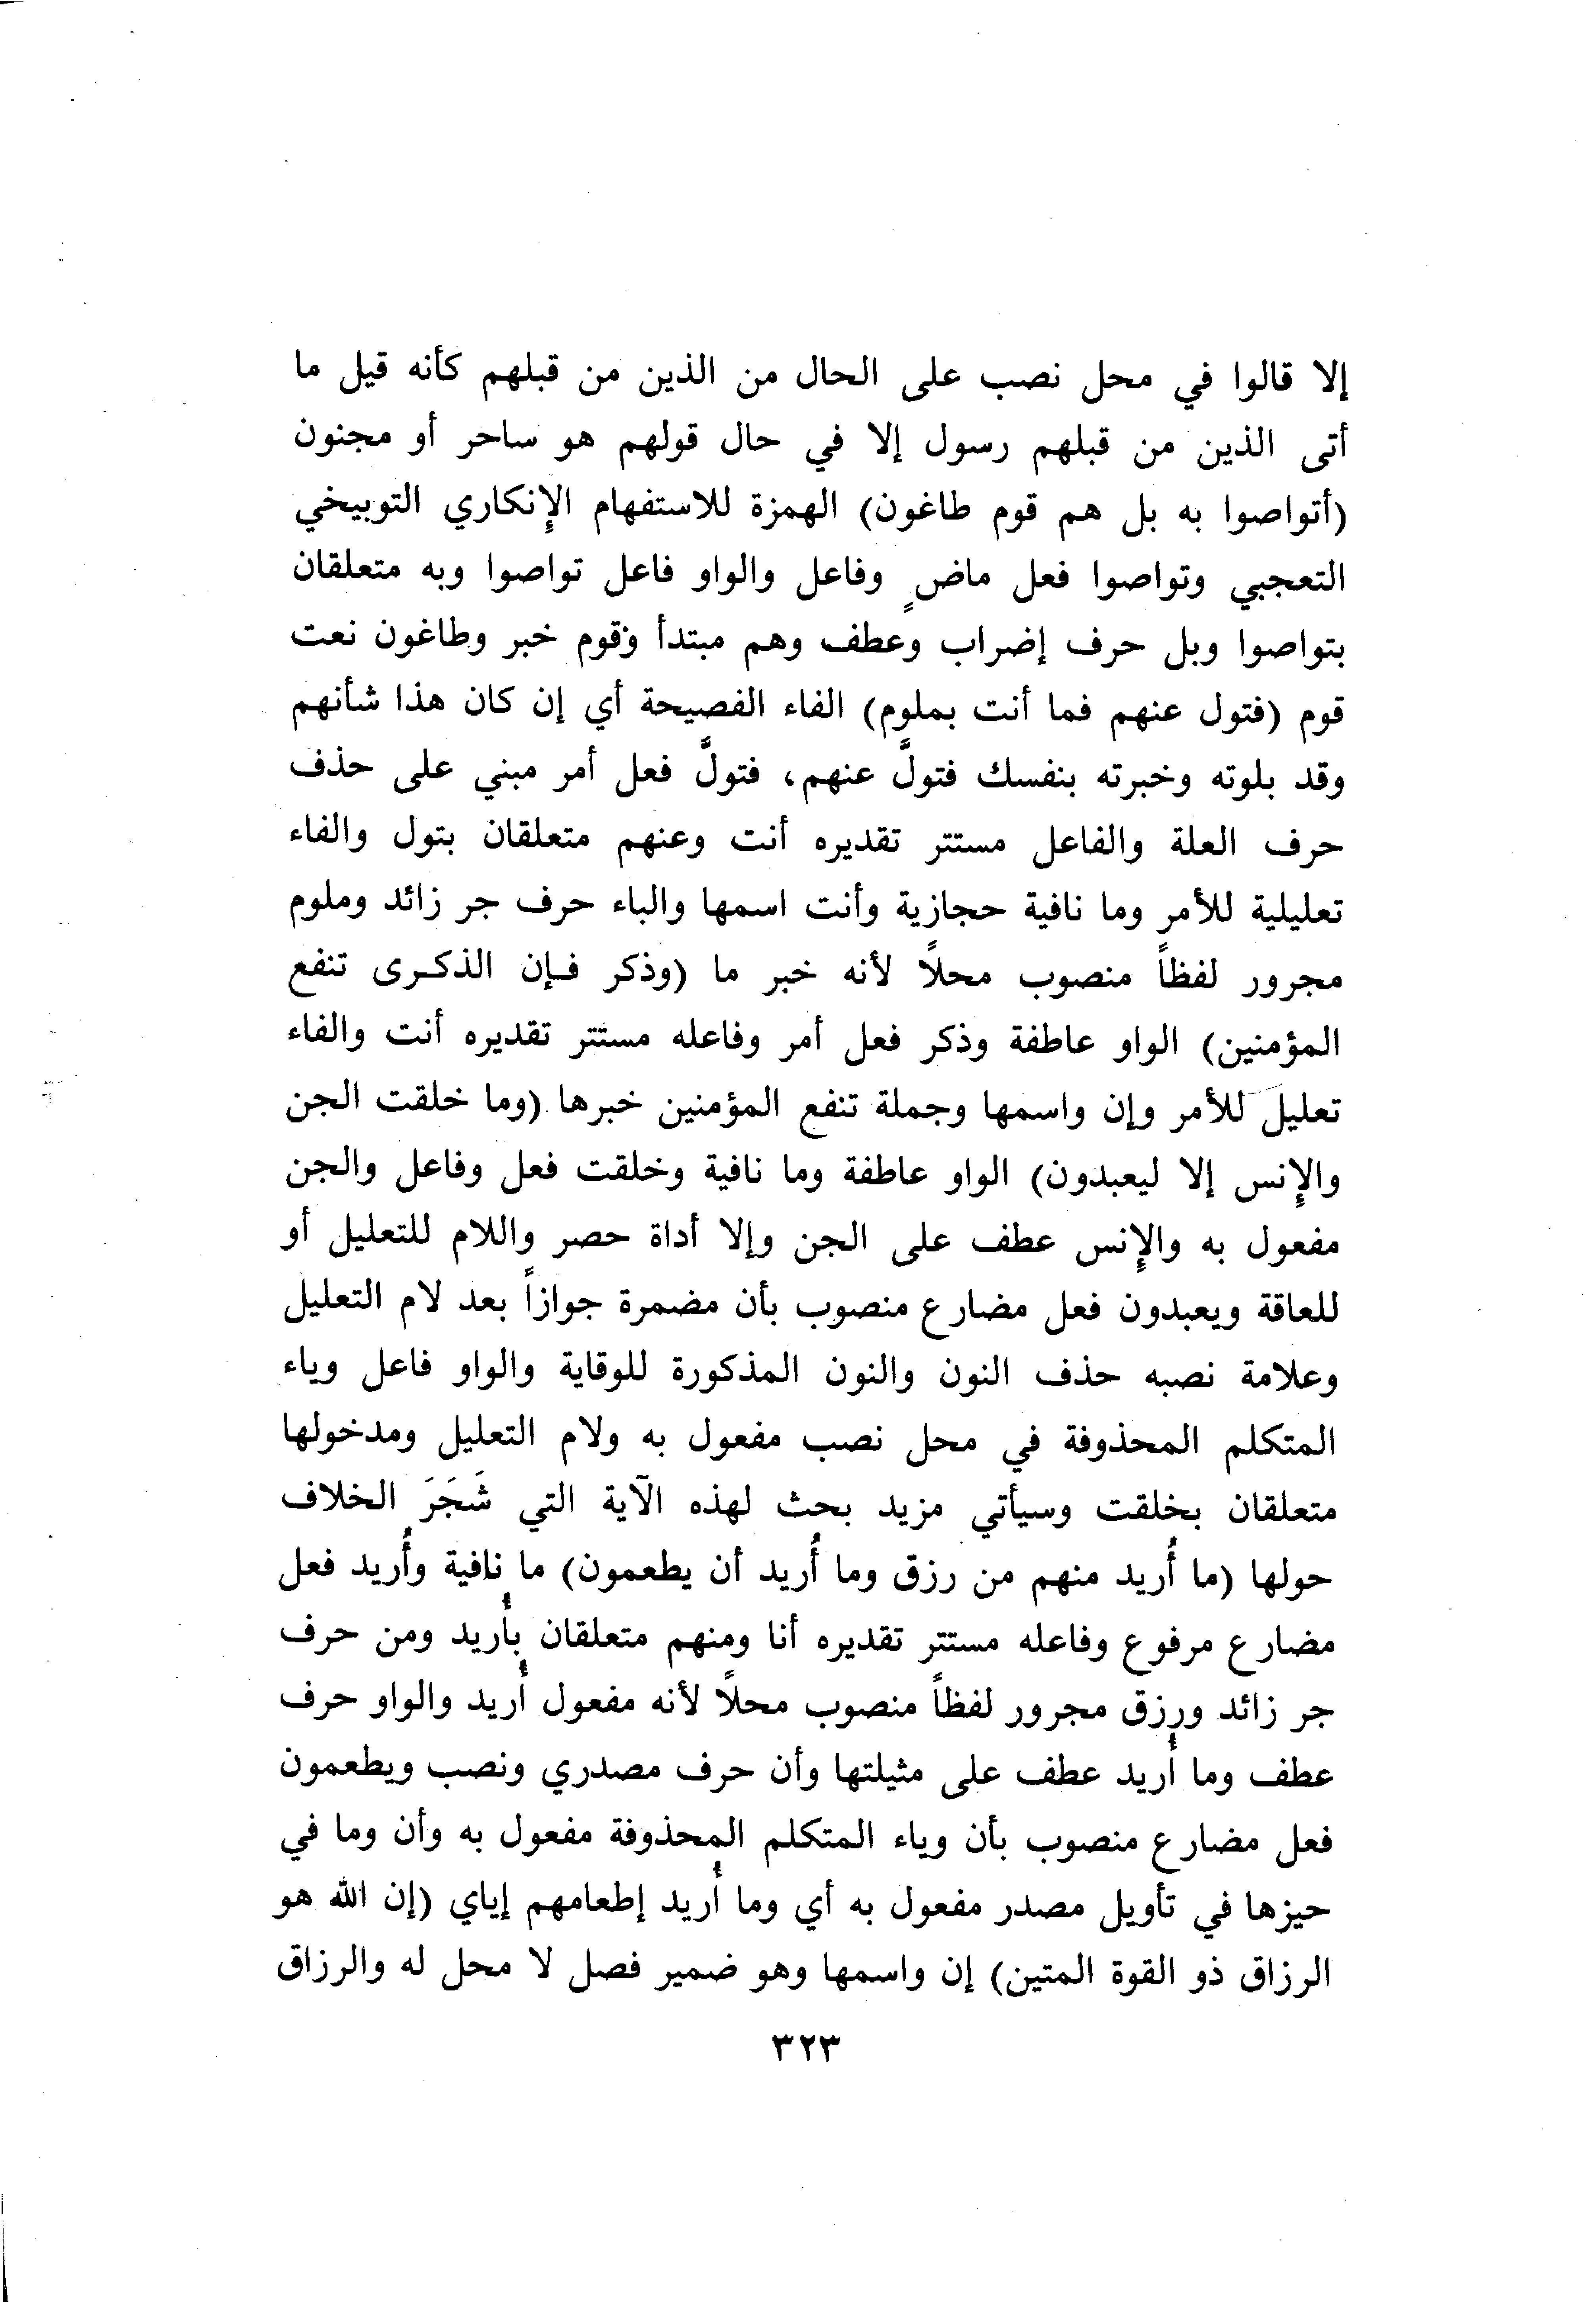 إلا قالوا في محل نصب على الحال من الذين من قبلهم كأنه قيل ما
أتى الذين من قبلهم رسول إلا في حال قولهم هو ساحر أو مجنون
(أتواصوا به بل هم قوم طاغون) الهمزة للاستفهام الإنكاري التوبيخي
التعجبي وتواصوا فعل ماضٍ وفاعل والواو فاعل تواصوا وبه متعلقان
بتواصوا وبل حرف إضراب وعطف وهم مبتدأ وقوم خبر وطاغون نعت
قوم (فتول عنهم فما أنت بملوم) الفاء الفصيحة أي إن كان هذا شأنهم
وقد بلوته وخبرته بنفسك فتولَّ عنهم، فتولَّ فعل أمر مبني على حذف
حرف العلة والفاعل مستتر تقديره أنت وعنهم متعلقان بتول والفاء
تعليلية للأمر وما نافية حجازية وأنت اسمها والباء حرف جر زائد وملوم
مجرور لفظاً منصوب محلاً لأنه خبر ما (وذكر فإن الذكرى تنفع
المؤمنين) الواو عاطفة وذكر فعل أمر وفاعله مستتر تقديره أنت والفاء
تعليل للأمر وإن واسمها وجملة تنفع المؤمنين خبرها (وما خلقت الجن
والإنس إلا ليعبدون) الواو عاطفة وما نافية وخلقت فعل وفاعل والجن
مفعول به والإنس عطف على الجن وإلا أداة حصر واللام للتعليل أو
للعاقة ويعبدون فعل مضارع منصوب بأن مضمرة جوازاً بعد لام التعليل
وعلامة نصبه حذف النون والنون المذكورة للوقاية والواو فاعل وياء
المتكلم المحذوفة في محل نصب مفعول به ولام التعليل ومدخولها
متعلقان بخلقت وسيأتي مزيد بحث لهذه الآية التي شَجَرَ الخلاف
حولها (ما أُريد منهم من رزق وما أُريد أن يطعمون) ما نافية وأُريد فعل
مضارع مرفوع وفاعله مستتر تقديره أنا ومنهم متعلقان بأُريد ومن حرف
جر زائد ورزق مجرور لفظاً منصوب محلاً لأنه مفعول أُريد والواو حرف
عطف وما أُريد عطف على مثيلتها وأن حرف مصدري ونصب ويطعمون
فعل مضارع منصوب بأن وياء المتكلم المحذوفة مفعول به وأن وما في
حيزها في تأويل مصدر مفعول به أي وما أُريد إطعامهم إياي (إن الله هو
الرزاق ذو القوة المتين) إن واسمها وهو ضمير فصل لا محل له والرزاق
٣٢٣